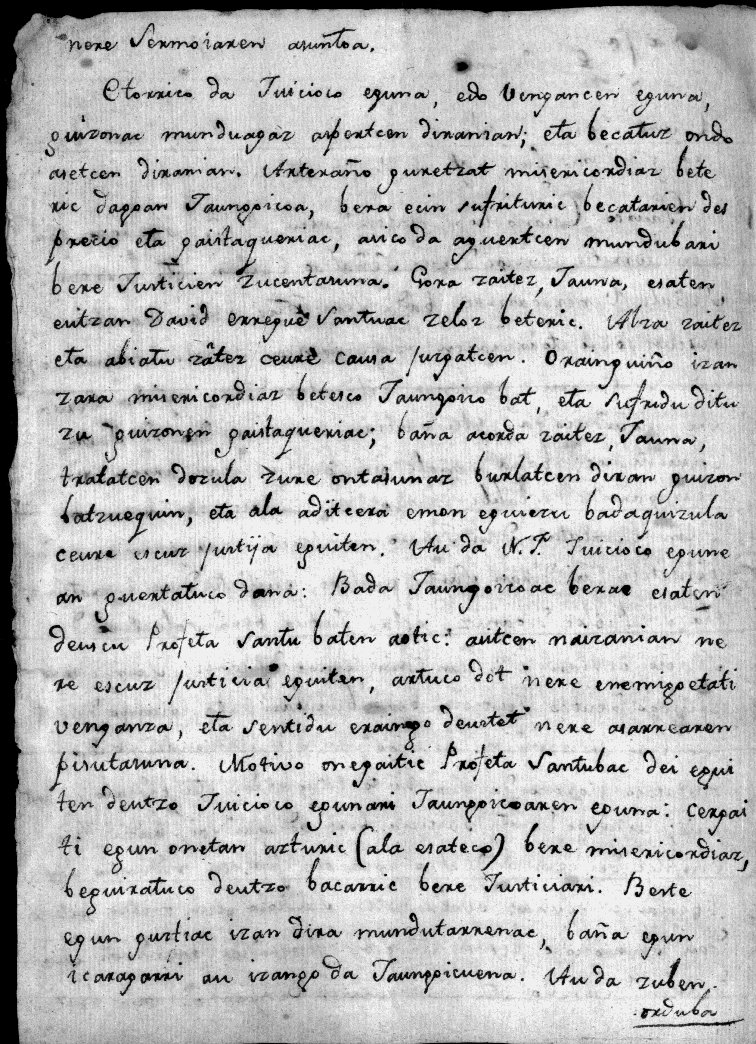 nere Sermoiaren asuntoa.
Etorrico da Juicioco eguna, edo Vengancen eguna,
guizonac munduagaz aspertcen diranian; eta becatuz ondo
asetcen diranian. Arteraño guretzat misericordiaz bete
ric dagoan Jaungoicoa, bera ecin sufrituric becatarien des
precio eta gaistaqueriac, asico da aguertcen mundubari
bere Justicien zucentasuna. Gora zaitez, Jauna, esaten
eutzan David erregue Santuac zeloz beteric. Alza zaitez
eta abiatu zâtez ceure causa juzgatcen. Orainguiño izan
zara misericordiaz beteco Jaungoico bat, eta sufridu ditu
zu guizonen gaistaqueriac; baña acorda zaitez, Jauna,
tratatcen dozula zure ontasunaz burlatcen diran guizon
batzuequin, eta ala aditcera emon eguiezu badaquizula
ceure escuz justija eguiten. Au da N.J. Juicioco egune
an guertatuco dana: Bada Jaungoicoac berac esaten
deuscu Profeta Santu baten aotic: artcen naizanian ne
re escuz justicia eguiten, artuco dot nere enemigoetati
venganza, eta sentidu eraingo deustet nere asarrearen
pisutasuna. Motivo onegaitic Profeta Santubac dei egui
ten deutzo Juicioco egunari Jaungoicoaren eguna: cergai
ti egun onetan azturic (ala esateco) bere misericordiaz,
beguiratuco deutzo bacarric bere Justiciari. Beste
egun guztiac izan dira mundutarrenac, baña egun
icaragarri au izango da Jaungoicuena. Au da zuben
orduba